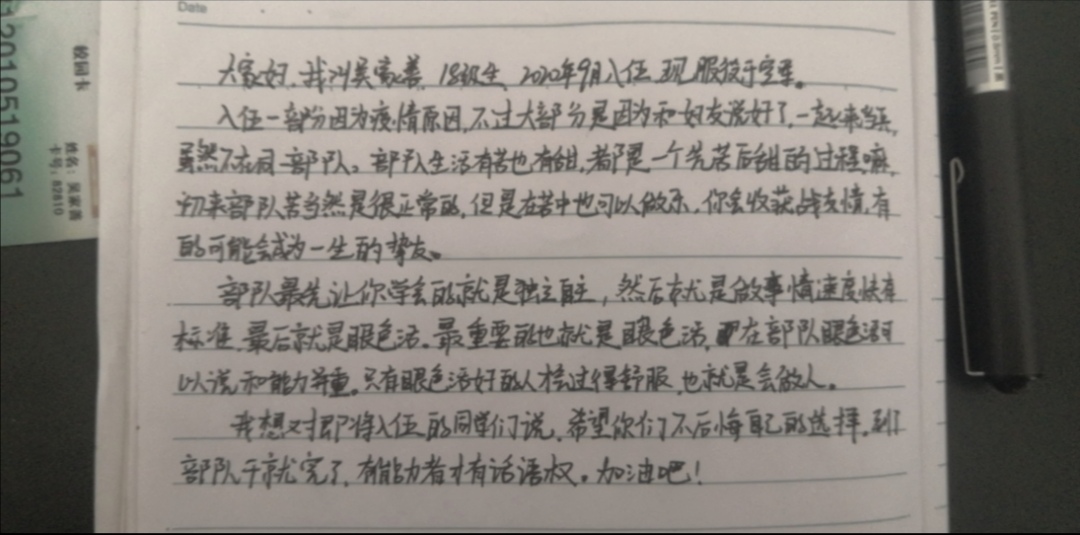 Date
大家好，我叫吴家善，18级生，2020年9月入伍，现服役于空军。
入伍一部分因为疫情原因，不过大部分是因为和女友说好了，一起来当兵，
虽然不在同一部队。部队生活有苦也有甜，都是一个先苦后甜的过程嘛，
初来部队苦当然是很正常的，但是在苦中也可以做乐，你会收获战友情，有
的可能会成为一生的挚友。
部队最先让你学会的就是独立自主，然后就是做事情速度快有
标准，最后就是眼色活。最重要的也就是眼色活，在部队眼色活可
以说和能力并重。只有眼色活好的人才会过得舒服，也就是会做人。
我想对即将入伍的同学们说，希望你们不后悔自己的选择，到了
部队干就完了，有能力者才有话语权。加油吧！
校园卡
姓名：吴家善
卡号：82810
1201051906​1